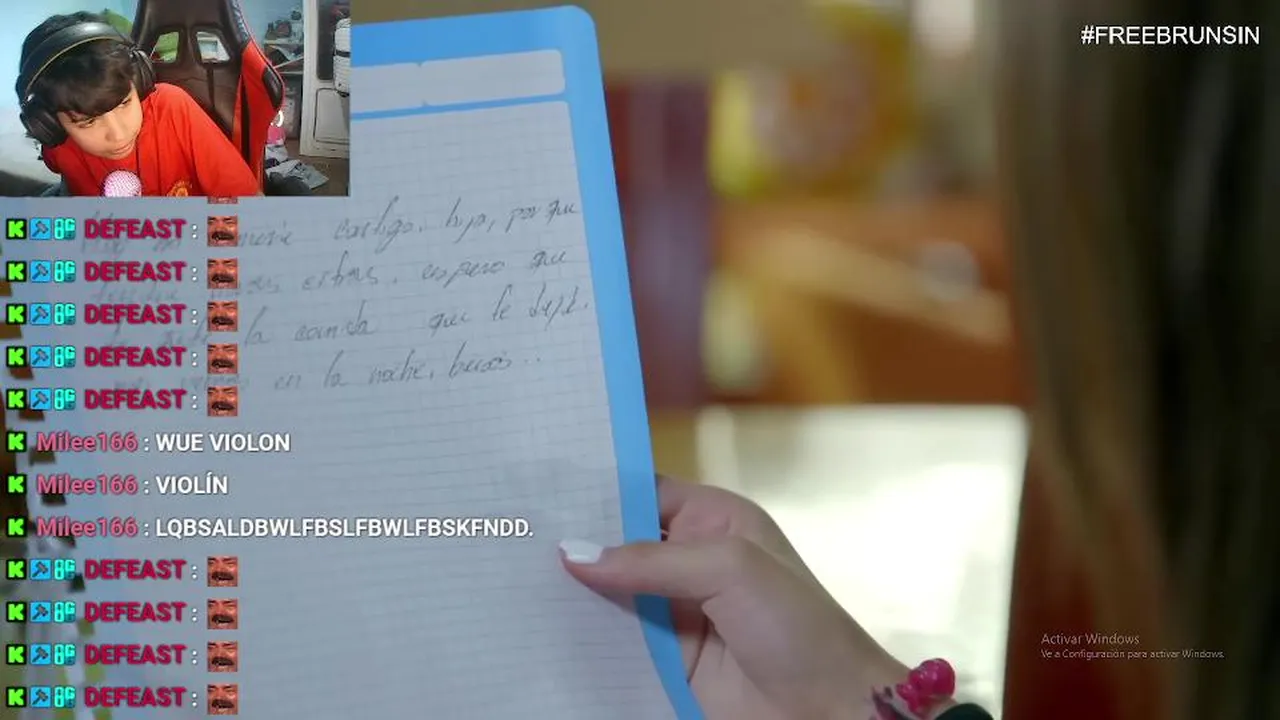 #FREEBRUNSIN
castigo, hija, porque
estrés, espero que
la comida que te dejé.
en la noche, besos...
DEFEAST :
DEFEAST :
DEFEAST :
DEFEAST :
DEFEAST :
Milee166 : WUE VIOLON
Milee166 : VIOLÍN
Milee166 : LQBSALDBWLFBSLFBWLFBSKFNDD.
DEFEAST :
DEFEAST :
DEFEAST :
DEFEAST :
Activar Windows
Ve a Configuración para activar Windows.